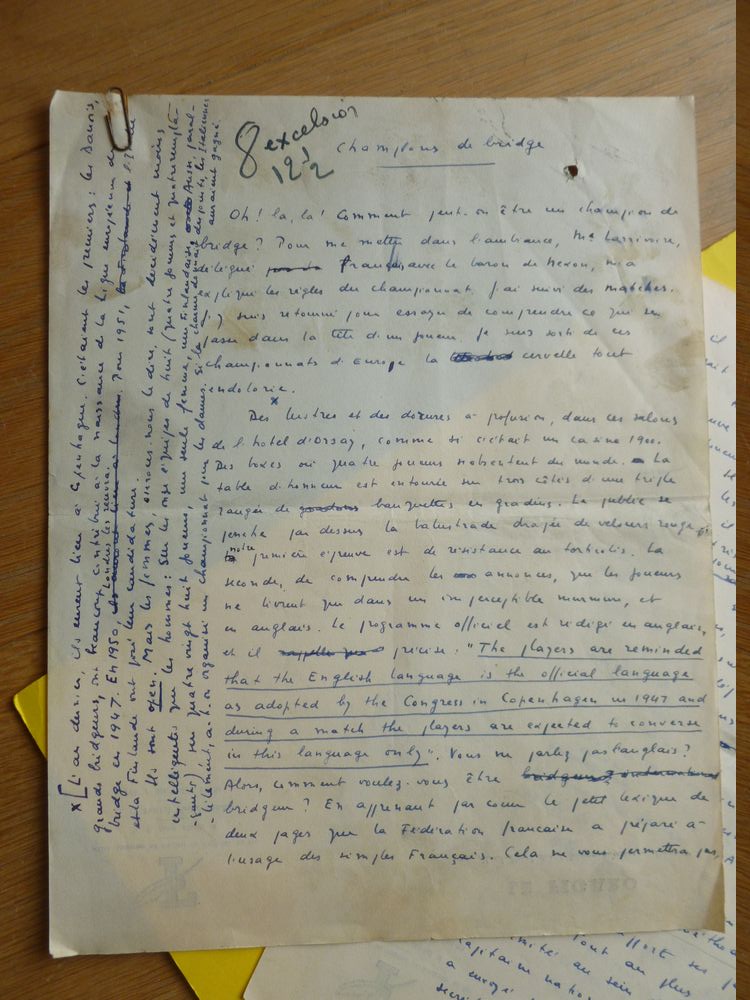 8 excelsior
12 1/2
Champions de bridge
Oh! la, la! Comment peut-on être un champion de
bridge? Pour me mettre dans l'ambiance, Me
délégué français avec le baron de Nexon, m'a
expliqué les règles du championnat. J'ai suivi des matches.
J'y suis retourné pour essayer de comprendre ce qui se
passe dans la tête d'un joueur. Je suis sorti de ces
championnats d'Europe la cervelle tout
endolorie.
x
Des lustres et des dorures à profusion, dans ces salons
de l'hotel d'Orsay, comme si c'était un casino 1900.
Des boxes où quatre joueurs s'absentent du monde. La
table d'honneur est entourée sur trois côtés d'une triple
rangée de banquettes en gradins. Le public se
penche par dessus la balustrade drapée de velours rouge
notre première épreuve est de résistance au torticolis. La
seconde, de comprendre les annonces, que les joueurs
ne livrent que dans un imperceptible murmure, et
en anglais. Le programme officiel est rédigé en anglais,
et il précise: "The players are reminded
that the English language is the official language
as adopted by the Congress in Copenhagen in 1947 and
during a match the players are expected to converse
in this language only". Vous ne parlez pas anglais?
Alors, comment voulez-vous être
bridgeur? En apprenant par coeur le petit lexique de
deux pages que la Fédération française a préparé à
l'usage des simples Français. Cela ne vous permettra pas,
x [L'an dernier, ils eurent lieu à Copenhague. C'étaient les premiers: les Danois,
grands bridgeurs, ont beaucoup contribué à la naissance de la Ligue européenne de
bridge en 1947. En 1950, Londres les reverra. Pour 1951,
et la Finlande ont posé leur candidature.
Ils sont open. Mais les femmes, avouons-nous le dire, sont décidément moins
intelligentes que les hommes: Sur les onze équipes de huit (quatre joueurs et quatre remplà-
-çants) sur quatre vingt huit joueurs, une seule femme, une Finlandaise. Aussi paral-
-lèlement, a-t-on organisé un championnat pour les dames. Si la charme donnait des points, les Italiennes
auraient gagné.